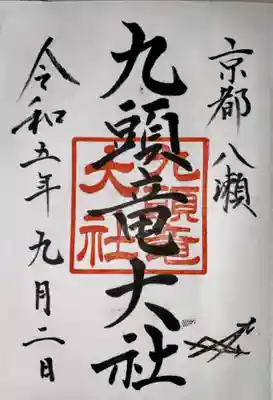 京都八瀬
九頭竜大社
九頭竜大社
令和五年九月二日